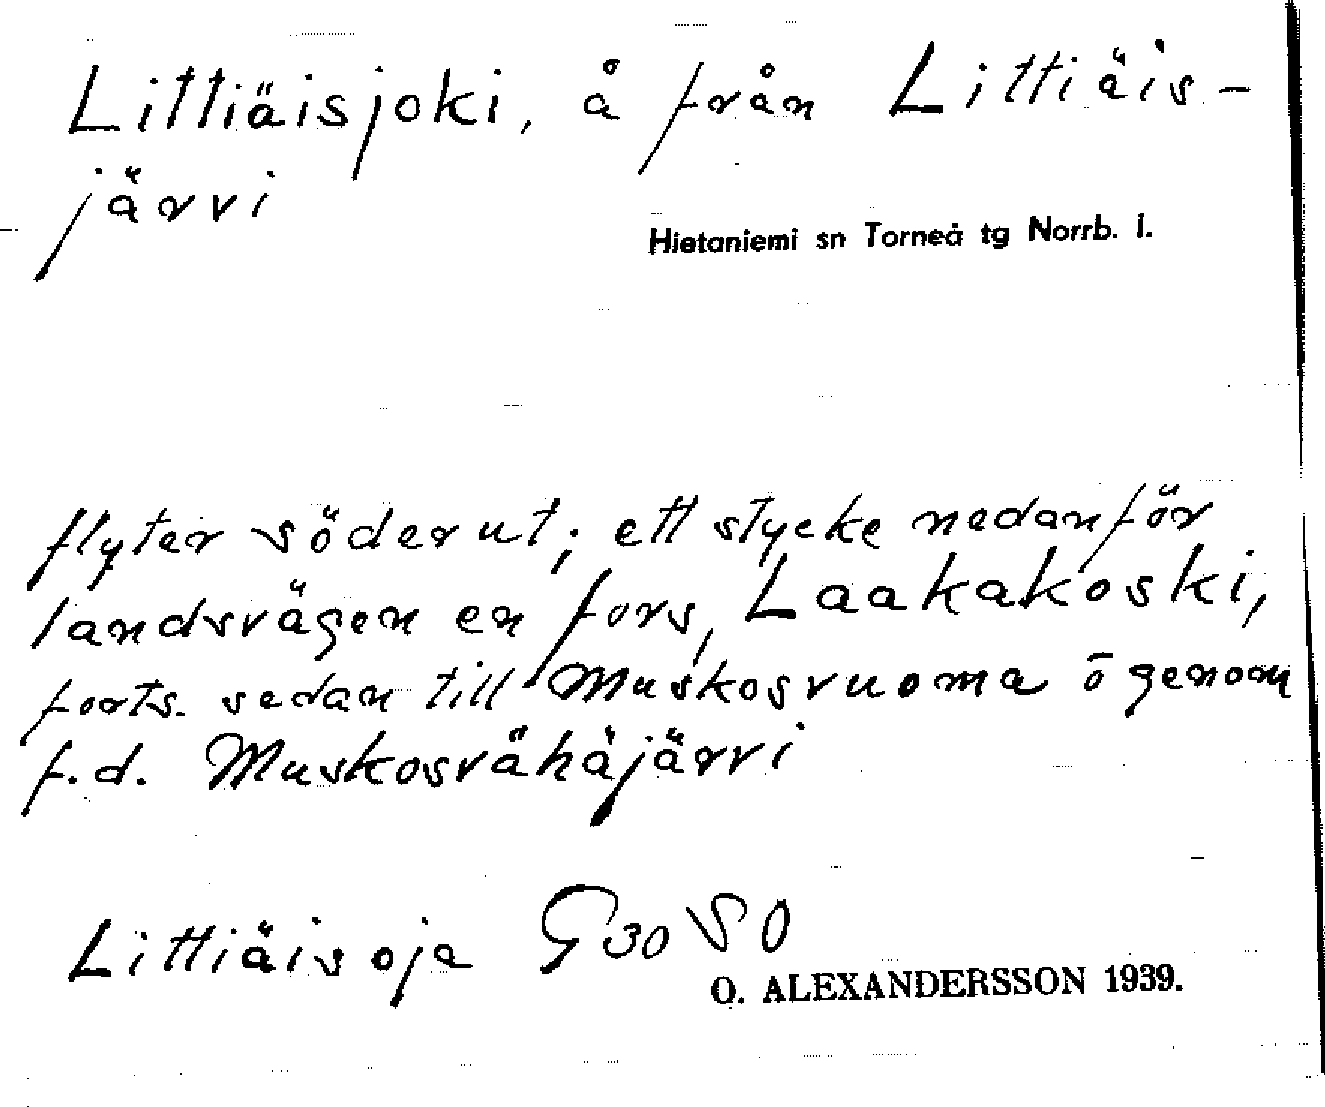 Littiäisjoki, å från Littiäis-
järvi
Hietaniemi sn Torneå tg Norrb. l.
flyter söderut; ett stycke nedanför
landsvägen en fors, Laakakoski,
forts. sedan till Muskosvuoma o genom
f.d. Muskosvähäjärvi
Littiäisoja G 30 SO
O. ALEXANDERSSON 1939.